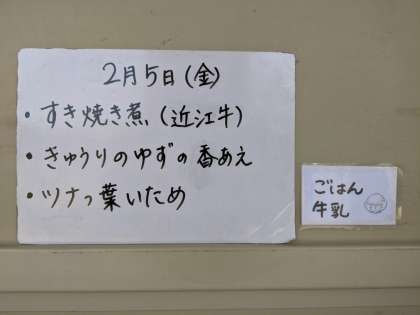 2月5日(金)
・すき焼き煮(近江牛)
・きゅうりのゆずの香あえ
・ツナっ葉いため
ごはん
牛乳